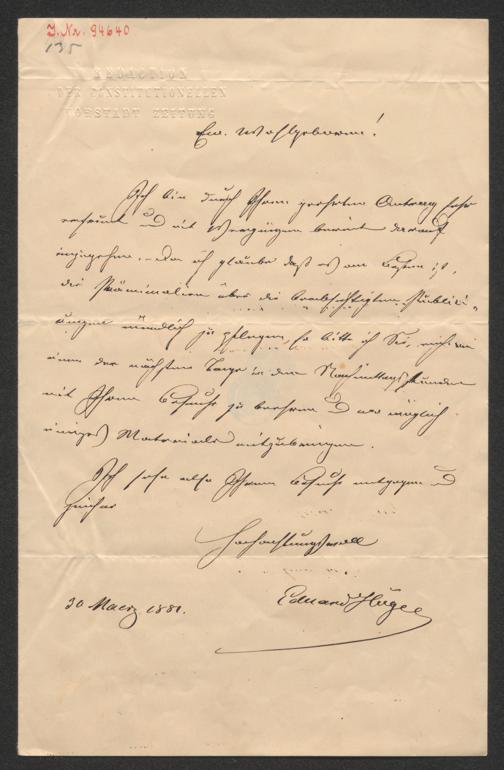 J. Nr. 94640
135
REDACTION
DER CONSTITUTIONELLEN
VORSTADT ZEITUNG
Ew. Wohlgeboren!
Ich bin durch Ihren geehrten Antrag sehr
erfreut und mit Vergnügen bereit darauf
einzugehen. Da ich glaube daß es am besten ist,
die Präliminalien über die beabsichtigten Publici-
mündlich zu pflegen, so bitte ich Sie, mich an
einem der nächsten Tage in den Nachmittagsstunden
mit Ihrem Besuche zu beehren und wo möglich
einiges Materiale mitzubringen.
Ich sehe also Ihrem Besuche entgegen und
zeichne
Hochachtungsvoll
Eduard Hügel
30 Maerz 1881.